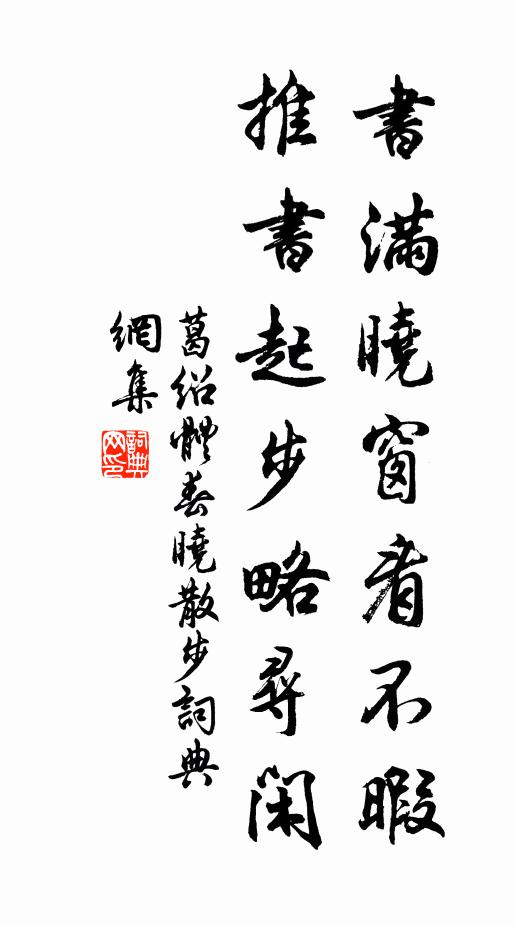 書滿曉窗看不暇
推書起步略尋閑
葛紹體春曉散步詞典
網集
詞典網印